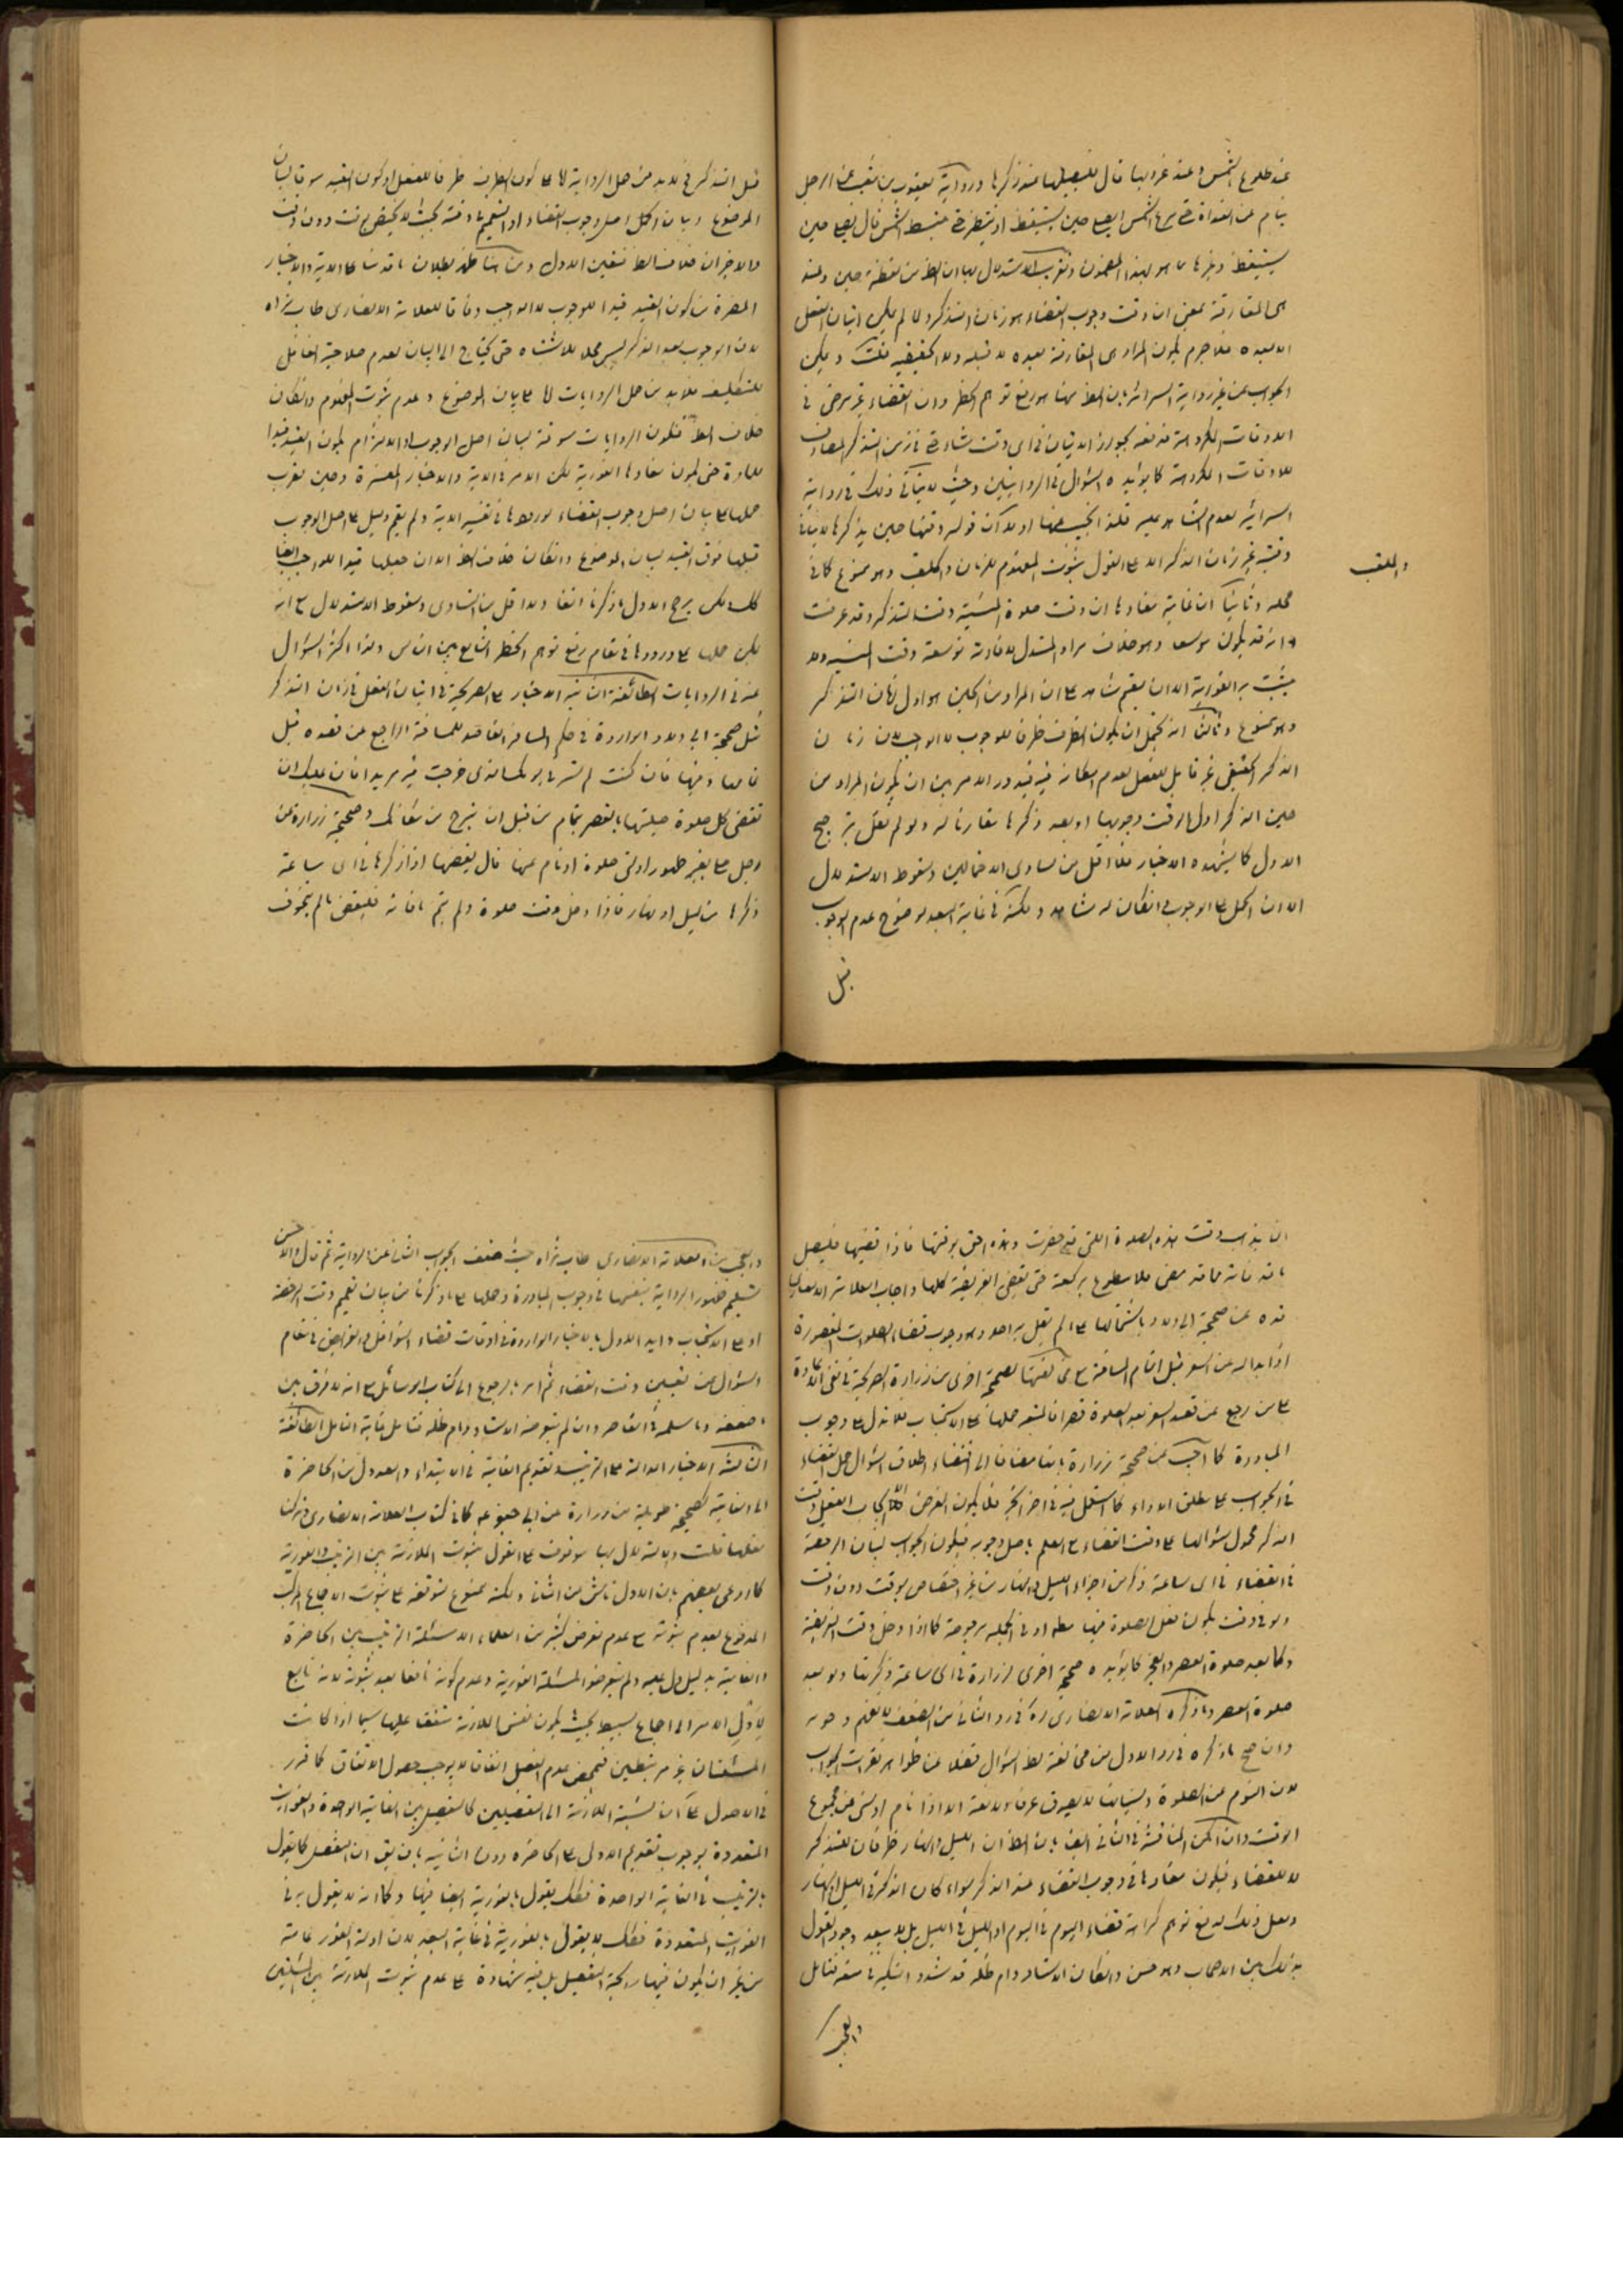 عند طلوع الشمس وعند غروبها قال فليصلها عند ذكرها ورواية يعقوب بن شعيب عن الرجل
ينام عن الغداة حتى يبزغ الشمس ايصلى حين يستيقظ او ينتظر حتى ينبسط الشمس قال يصلى حين
يستيقظ وغيرها مما هو بهذا المضمون وتقريب الاستدلال بها ان الظ من لفظة حين وعند
هى المقارنة بمعنى ان وقت وجوب القضاء هو زمان التذكر ولما لم يكن اتيان الفعل
الا بعده فلا جرم يكون المراد من المقارنة بعده لا قبله ولا الحقيقية قلت ويمكن
الجواب عن غير رواية السرائر بان الظ منها هو رفع توهم الحظر وان القضاء غير مرخص فى
الاوقات المكروهة فدفعه بجواز الاتيان فى اى وقت شاء حتى فى زمن التذكر المصادف
للاوقات المكروهة كما يؤيده السؤال فى الروايتين وحيث لا يتأتى ذلك فى رواية
السرائر لعدم الشاهد عليه فلنا الجيب عنها اولا ان قوله وقتها حين يذكرها لا ينافى
وقتية غير زمان الذكر الا على القول بثبوت المفهوم للزمان واللقب وهو ممنوع كما فى
واللقب
محله وثانيا ان غاية مفادها ان وقت صلوة المنسية وقت التذكر وقد عرفت
انه قد يكون موسعا وهو خلاف مراد المستدل لافادته توسعة وقت المنسية ولا
يثبت به الفورية الا ان يقيم شاهد على ان المراد من الحين هو اول زمان التذكر
وهو ممنوع وثالثا انه يحتمل ان يكون الظرف ظرفا للوجوب لا الواجب لان زمان
الذكر الحقيقى غير قابل للفعل لعدم امكانه فيه فيدور الامر بين ان يكون المراد من
حين الذكر اول الوقت وجوبها او بعد ذكرها مقارنا له ولو لم نقل بترجيح
الاول كما يشهده الاخبار فلا اقل من تساوى الاحتمالين وسقوط الاستدلال
الا ان الحمل على الوجوب وان كان له شاهد ولكنه فى غاية البعد لوضوح عدم الوجوب
قبل
قبل التذكر فلا بد من حمل الرواية اما على كون الظرف ظرفا للفعل او كون القيد سوقا لبيان
الموضوع وبيان اصل وجوب القضاء او التعميم فى وقته بحيث لا يختص بوقت دون وقت
والاخيران خلاف الظ فتعين الاول ومن هنا ظهر بطلان ما قدمنا على الاية والاخبار
المفسرة من كون القيد قيدا للوجوب لا الواجب وفاقا للعلامة الانصارى طاب ثراه
لان الوجوب بعد الذكر ليس محلا للاشتباه حتى يحتاج الى البيان لعدم صلاحية الغافل
للتكليف فلا بد من حمل الروايات اما على بيان الموضوع وعدم ثبوت المفهوم وان كان
خلاف الظ فتكون الروايات مسوقة لبيان اصل الوجوب او الالتزام بكون القيد قيدا
للمادة حتى يكون مفادها الفورية لكن الامر فى الاية والاخبار المفسرة وحين تعرب
حملها على بيان اصل وجوب القضاء لورودها فى تفسير الاية ولم يقم دليل على اصل الوجوب
قبلها فوق القيد لبيان الموضوع وان كان خلاف الظ الا ان جعلها قيدا للواجب ايضا
كك لكن يرجح الاول ما ذكرنا انفا ولا اقل من التساوى وسقوط الاستدلال مع انه
يمكن حملها على ورودها فى مقام رفع توهم الحظر الشايع بين الناس ولذا اكثر السؤال
عنه فى الروايات الطائفة الثانية الاخبار الصريحة فى اتيان الفعل فى زمان التذكر
مثل صحيحة ابى ولاد الواردة فى حكم المسافر القاصد للمسافة الراجع عن قصده قبل
تمامها ومنها فان كنت لم تسر فى يومك الذى خرجت فيه بريدا فان عليك ان
تقضى كل صلوة صليتها بالقصر بتمام من قبل ان تبرح من مكانك وصحيحة زرارة عن
رجل صلى بغير طهور او نسى صلوة او نام عنها قال يقضها اذا ذكرها فى اى ساعة
ذكرها من ليل او نهار فاذا دخل وقت صلوة ولم يتم ما فاته فليقض ما لم يتخوف
ان يذهب وقت هذه الصلوة التى قد حضرت وهذه احق بوقتها فاذا قضيها فليصل
ما قد فاته مما قد مضى فلا يتطوع بركعة حتى يقضى الفريضة كلها واجاب العلامة الانصارى
قده عن صحيحة ابى ولاد باشتمالها على ما لم يقل به احد وهو وجوب قضاء الصلوات المقصورة
اذا بدا له عن السفر قبل اتمام المسافة مع مخالفتها لصحيحة اخرى من زرارة الصريحة فى نفى الاعادة
على من رجع عن قصد السفر بعد الصلوة قصرا فالمتجه حملها على الاستحباب فلا تدل على وجوب
المبادرة كما اجيب عن صحيحة زرارة بانها مضافا الى اقتضاء اطلاق السؤال حمل القضاء
فى الجواب على مطلق الاداء كما استعمل فيه فى اخر الخبر فلا يكون الغرض الا ايجاب الفعل وقت
الذكر محمول سؤالها على وقت القضاء مع العلم باصل وجوبه فيكون الجواب لبيان الرخصة
فى القضاء فى اى ساعة ذكر من اجزاء الليل والنهار من غير اختصاص بوقت دون وقت
ولو فى وقت يكون فعل الصلوة فيها مط او فى الجملة مرجوحة كما اذا دخل وقت الفريضة
وكما بعد صلوة العصر والفجر كما يؤيده صحيحة اخرى لزرارة فى اى ساعة ذكرتها ولو بعد
صلوة العصر وما ذكره العلامة الانصارى ره فى رد الثانى من الضعف لا نفهم وجهه
وان صح ما ذكره فى رد الاول من مخالفة لظ السؤال فضلا عن ظواهر فقرات الجواب
لان النوم عن الصلوة ونسيانها لا يصدق عرفا ولا لغة الا اذا نام او نسى فى مجموع
الوقت وان امكن المناقشة فى الثانى ايضا بان الظ ان الليل والنهار ظرفان للتذكر
لا للقضاء فيكون مفادها فى وجوب القضاء عند الذكر سواء كان الذكر فى الليل او النهار
ولعل ذلك لدفع توهم كراهة قضاء اليوم فى اليوم او الليل فى الليل بل لا يبعد وجود القول
بذلك بين الاصحاب وهو حسن وان كان الاستاد دام ظله قد شدد النكير فى منعه فتامل
والعجب
والعجب من العلامة الانصارى طاب ثراه حيث ضعف الجواب الثانى عن الرواية ثم قال والاحسن
تسليم ظهور الرواية بنفسها فى وجوب المبادرة وحملها على ما ذكرنا من بيان تعميم وقت الرخصة
او على الاستحباب وايد الاول بالاخبار الواردة فى اوقات قضاء النوافل والفرائض فى مقام
السؤال عن تعيين وقت القضاء ثم امر بالرجوع الى كتاب الوسائل مع انه لا فرق بين
ما ضعفه وما سلمه فى القاصر وان لم يتعرضه الاستاد دام ظله فتامل غاية التامل الطائفة
الثالثة الاخبار الدالة على الترتيب وتقديم الفائتة فى الابتداء والعدول من الحاضرة
الى الفائتة كصحيحة طويلة من زرارة عن ابى جعفر ع كما فى كتاب العلامة الانصارى وتركنا
نقلها قلت والاستدلال بها موقوف على القول بثبوت الملازمة بين الترتيب والفورية
كما ادعى بعضهم بان الاول ناش من الثانى ولكنه ممنوع لتوقفه على ثبوت الاجماع المركب
المدفوع بعدم ثبوته مع عدم تعرض كثير من العلماء الا مسئلة الترتيب بين الحاضرة
والفائتة بدليل دل عليه ولم يتعرضوا لمسئلة الفورية وعدم كونه نافعا بعد ثبوته لانه تابع
لاول الامر الى اجماع بسيط بحيث يكون نفس الملازمة متفقا عليها سيما اذا كانت
المسئلتان غير مرتبطين فمحض عدم الفصل اتفاقا لا يوجب حصول الاتفاق كما قرر
فى الاصول على ان نسبة الملازمة الى المفصلين كالمفصل بين الفائتة الواحدة والفوائت
المتعددة بوجوب تقديم الاولى على الحاضرة دون الثانية بان يق ان المفصل كما يقول
بالترتيب فى الفائتة الواحدة فكك يقول بالفورية ايضا فيها وكما انه لا يقول به فى
الفوائت المتعددة فكك لا يقول بالفورية فى غاية البعد لان ادلة الفور عامة
من غير ان يكون فيها رائحة التفصيل بل فيه شهادة على عدم ثبوت الملازمة بين المسئلتين